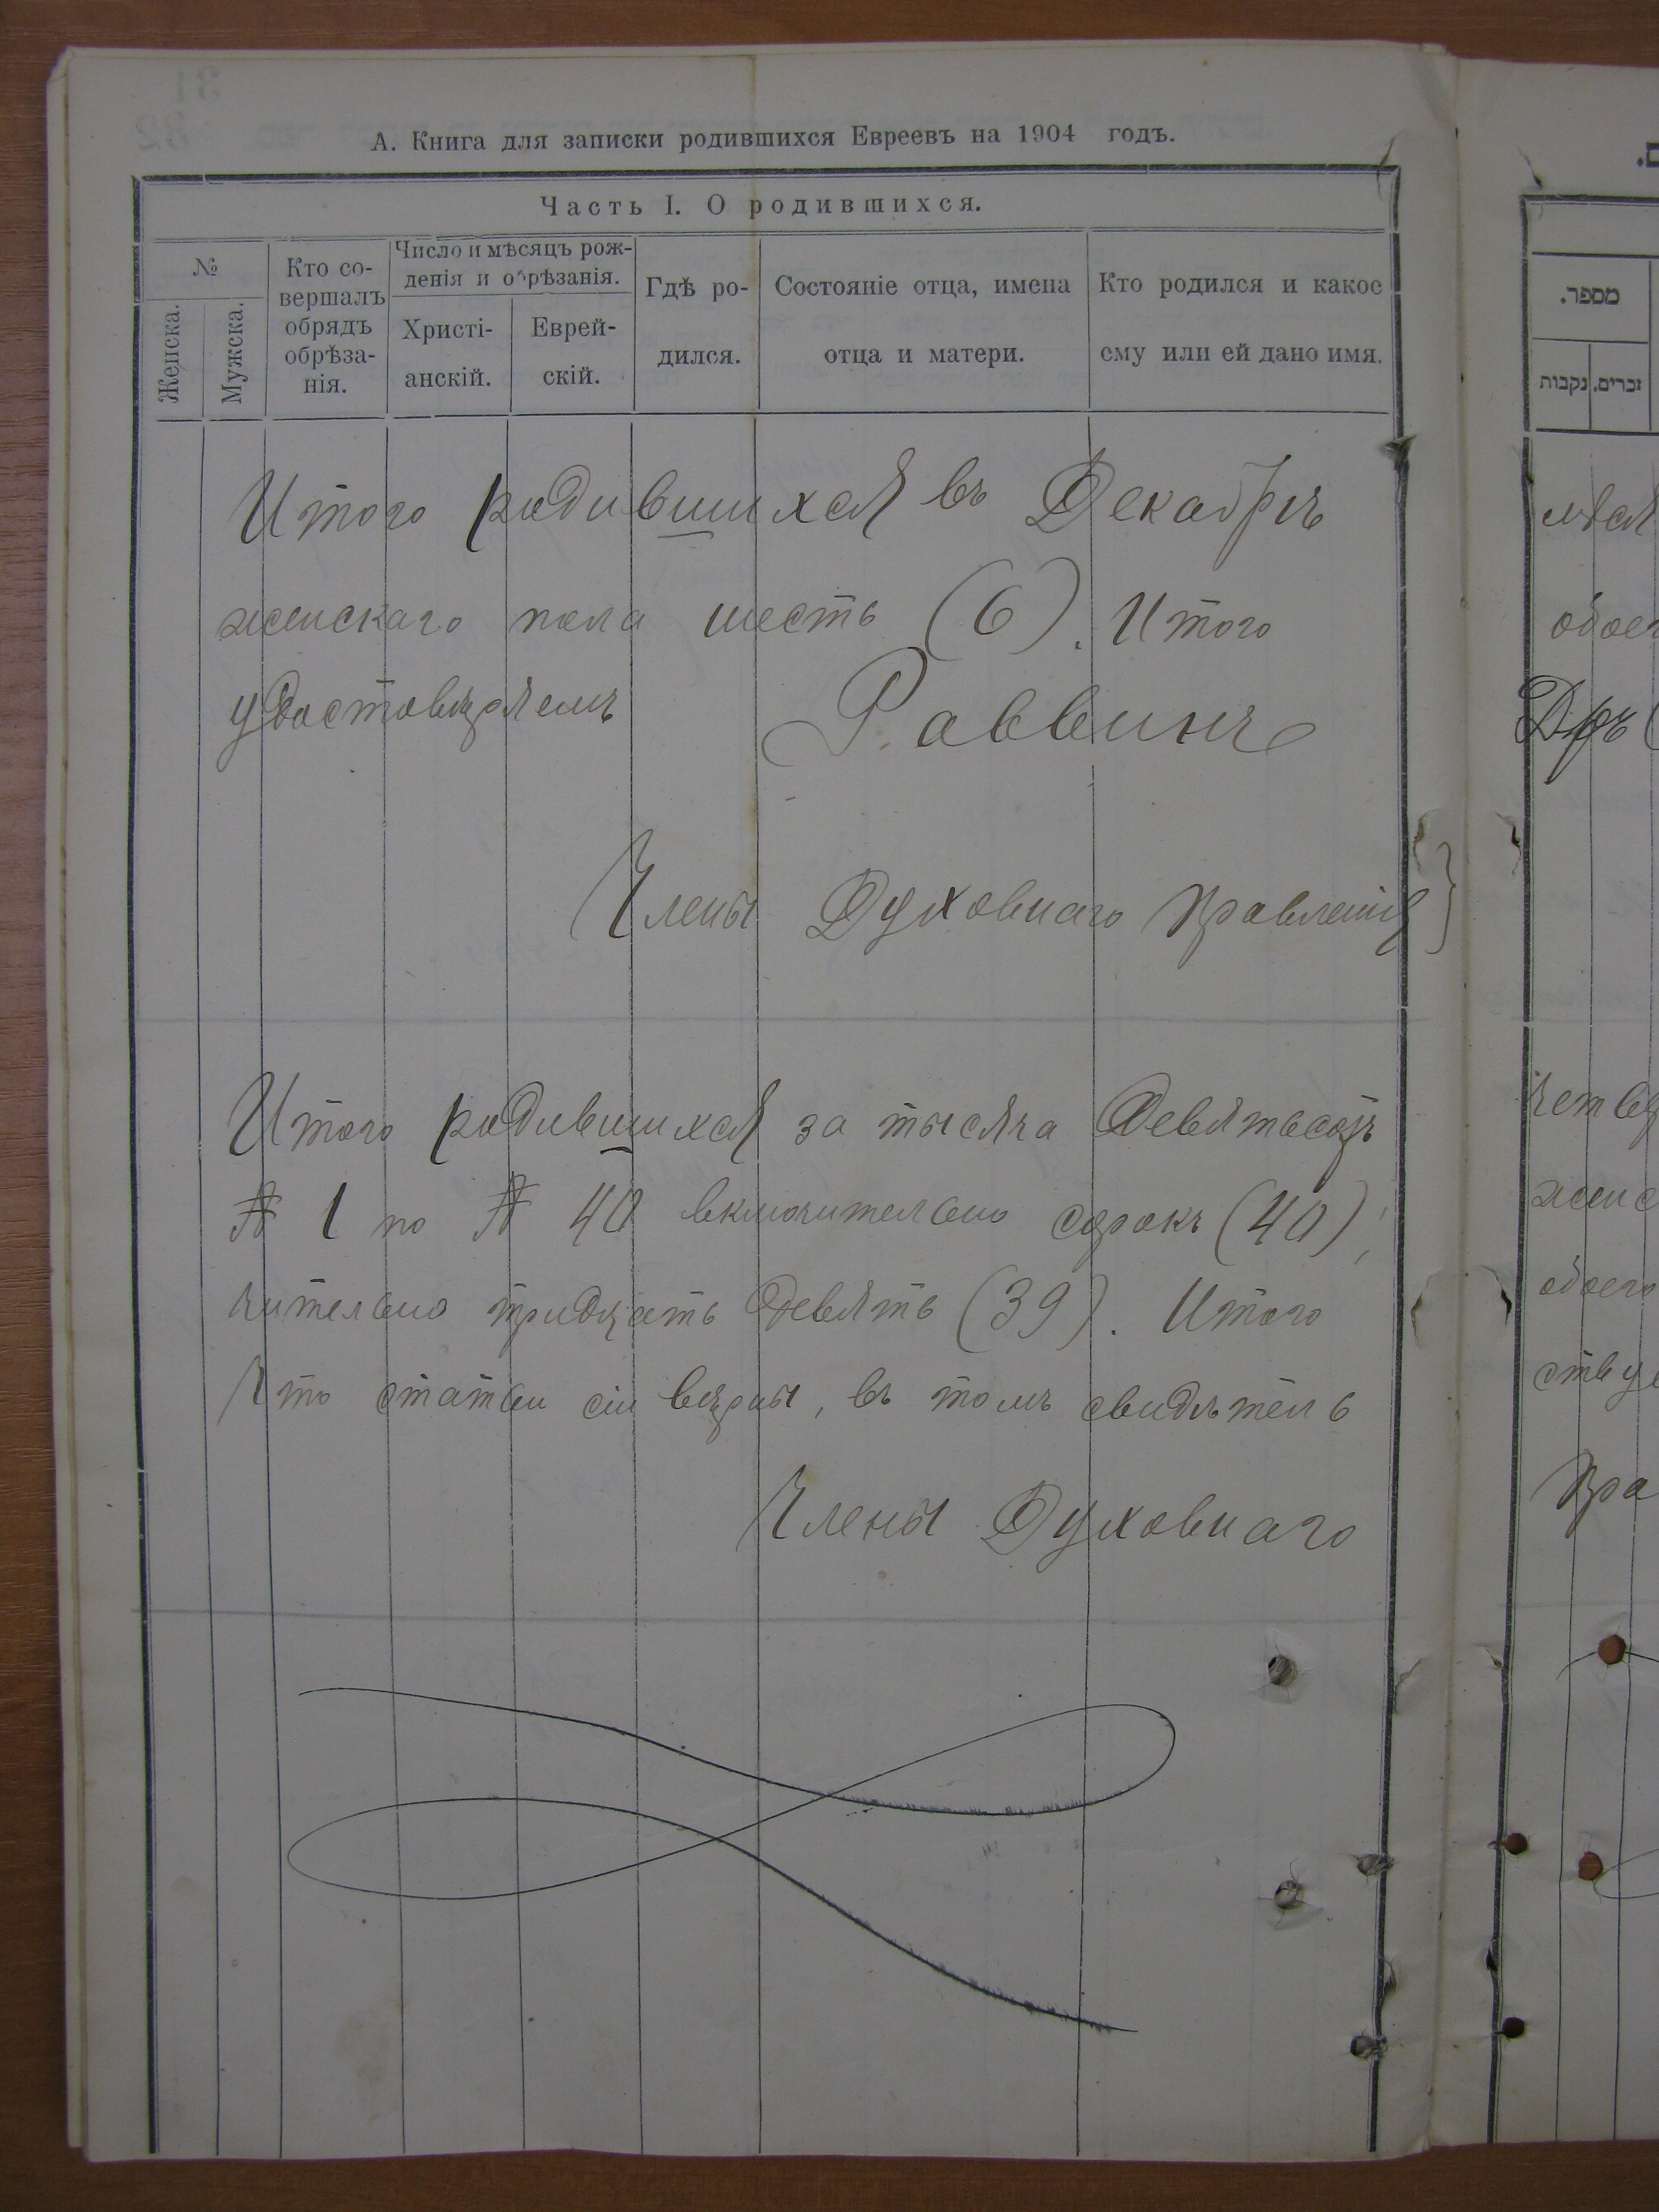 А. Книга для записки родившихся Евреевъ на 1904 годъ.
Часть I. О родившихся.
№
Женска.
Мужска.
Кто со-
вершалъ
обрядъ
обрѣза-
нія.
Число и мѣсяцъ рож-
денія и обрѣзанія.
Христі-
анскій.
Еврей-
скій.
Гдѣ ро-
дился.
Состояніе отца, имена
отца и матери.
Кто родился и какое
ему или ей дано имя.
Итого родившихся въ Декабрѣ
женскаго пола шесть (6). Итого
удостовѣряемъ Раввинъ
Члены Духовнаго Правленія }
Итого родившихся за тысяча девятьсотъ
№ 1 по № 40 включительно сорокъ (40);
чительно тридцать девять (39). Итого
Что статьи сіи вѣрны, въ томъ свидѣтель
Члены Духовнаго
מספר.
זכרים.
נקבות
мѣся
обоег
Дръ (
четве
женс
обоего
ству
Пра